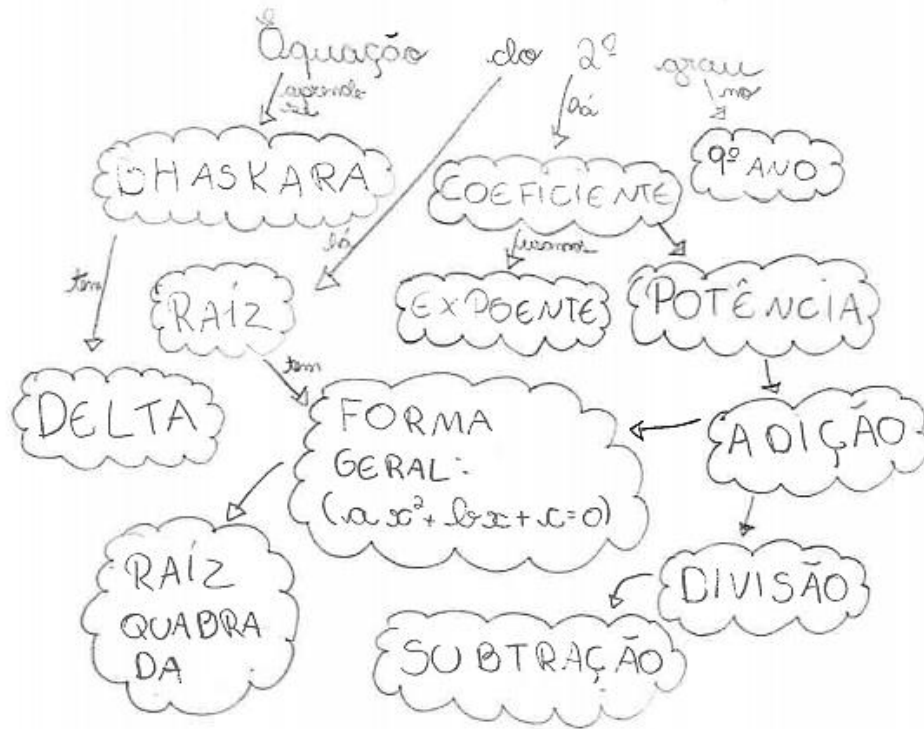 Equação do 2º grau
aprende
se
há
no
BHASKARA
COEFICIENTE
9º ANO
tem
há
usamos
RAÍZ
EXPOENTE
POTÊNCIA
tem
DELTA
FORMA
GERAL:
(ax²+bx+c=0)
ADIÇÃO
RAÍZ
QUADRA
DA
DIVISÃO
SUBTRAÇÃO